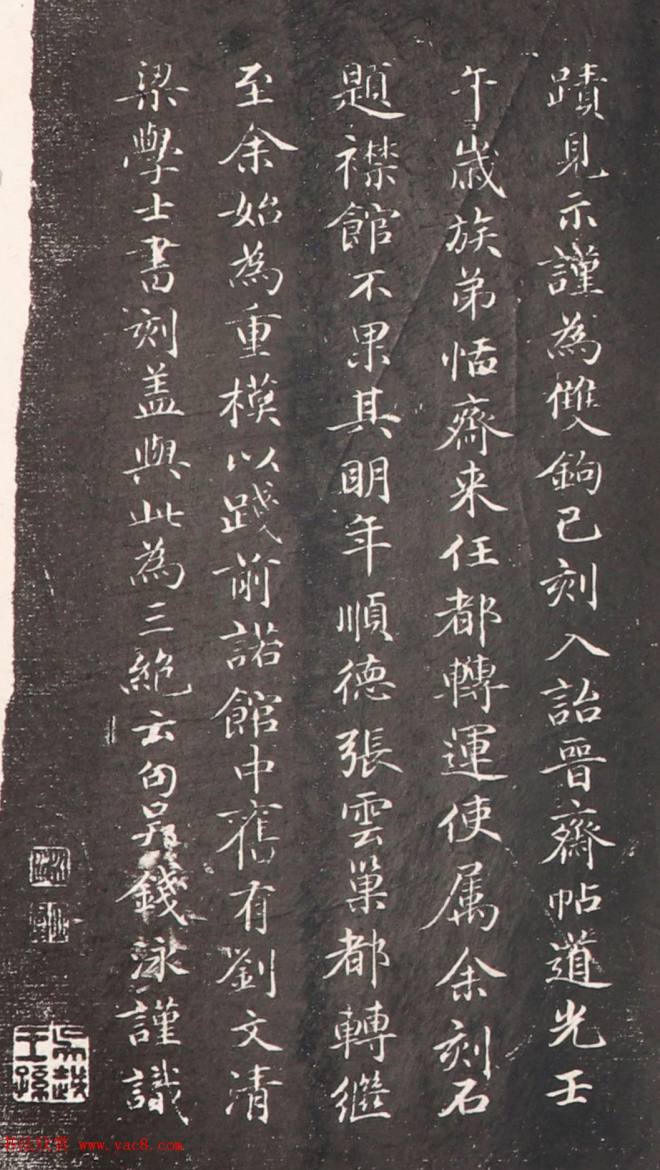 蹟見示謹為雙鉤已刻入詒晉齋帖道光壬
午歲族弟恬齋来任都轉運使属余刻石
題襟館不果其明年順德張雲巢都轉繼
至余始為重模以踐前諾館中舊有劉文清
梁學士書刻盖與此為三絶云句吳錢泳謹識
吳越王孫
书法欣赏 www.yac8.com